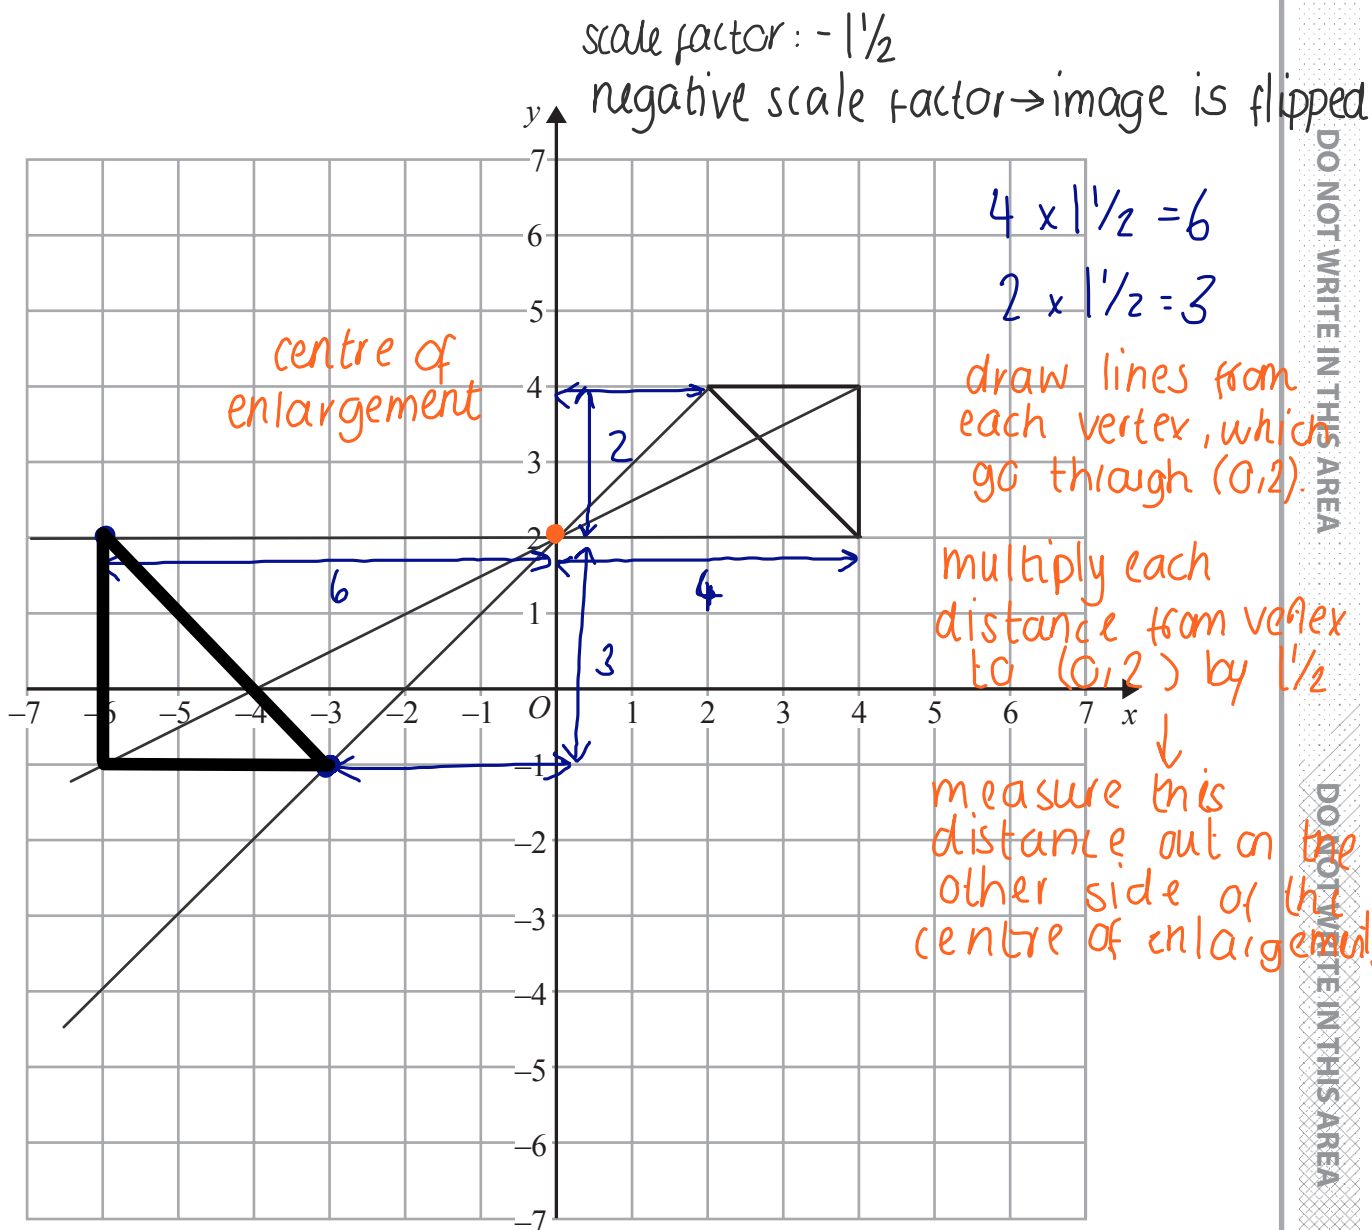 scale factor: -1 1/2
negative scale factor→image is flipped
y
7
6
5
4
3
2
1
O
-1
-2
-3
-4
-5
-6
-7
–7 –6 –5 –4 –3 –2 –1 1 2 3 4 5 6 7 x
4 x 1 1/2 = 6
2 x 1 1/2 = 3
centre of
enlargement
2
6
4
3
draw lines from
each vertex, which
go through (0,2).
multiply each
distance from vertex
to (0,2) by 1 1/2
↓
measure this
distance out on the
other side of the
centre of enlargement
DO NOT WRITE IN THIS AREA
DO NOT WRITE IN THIS AREA